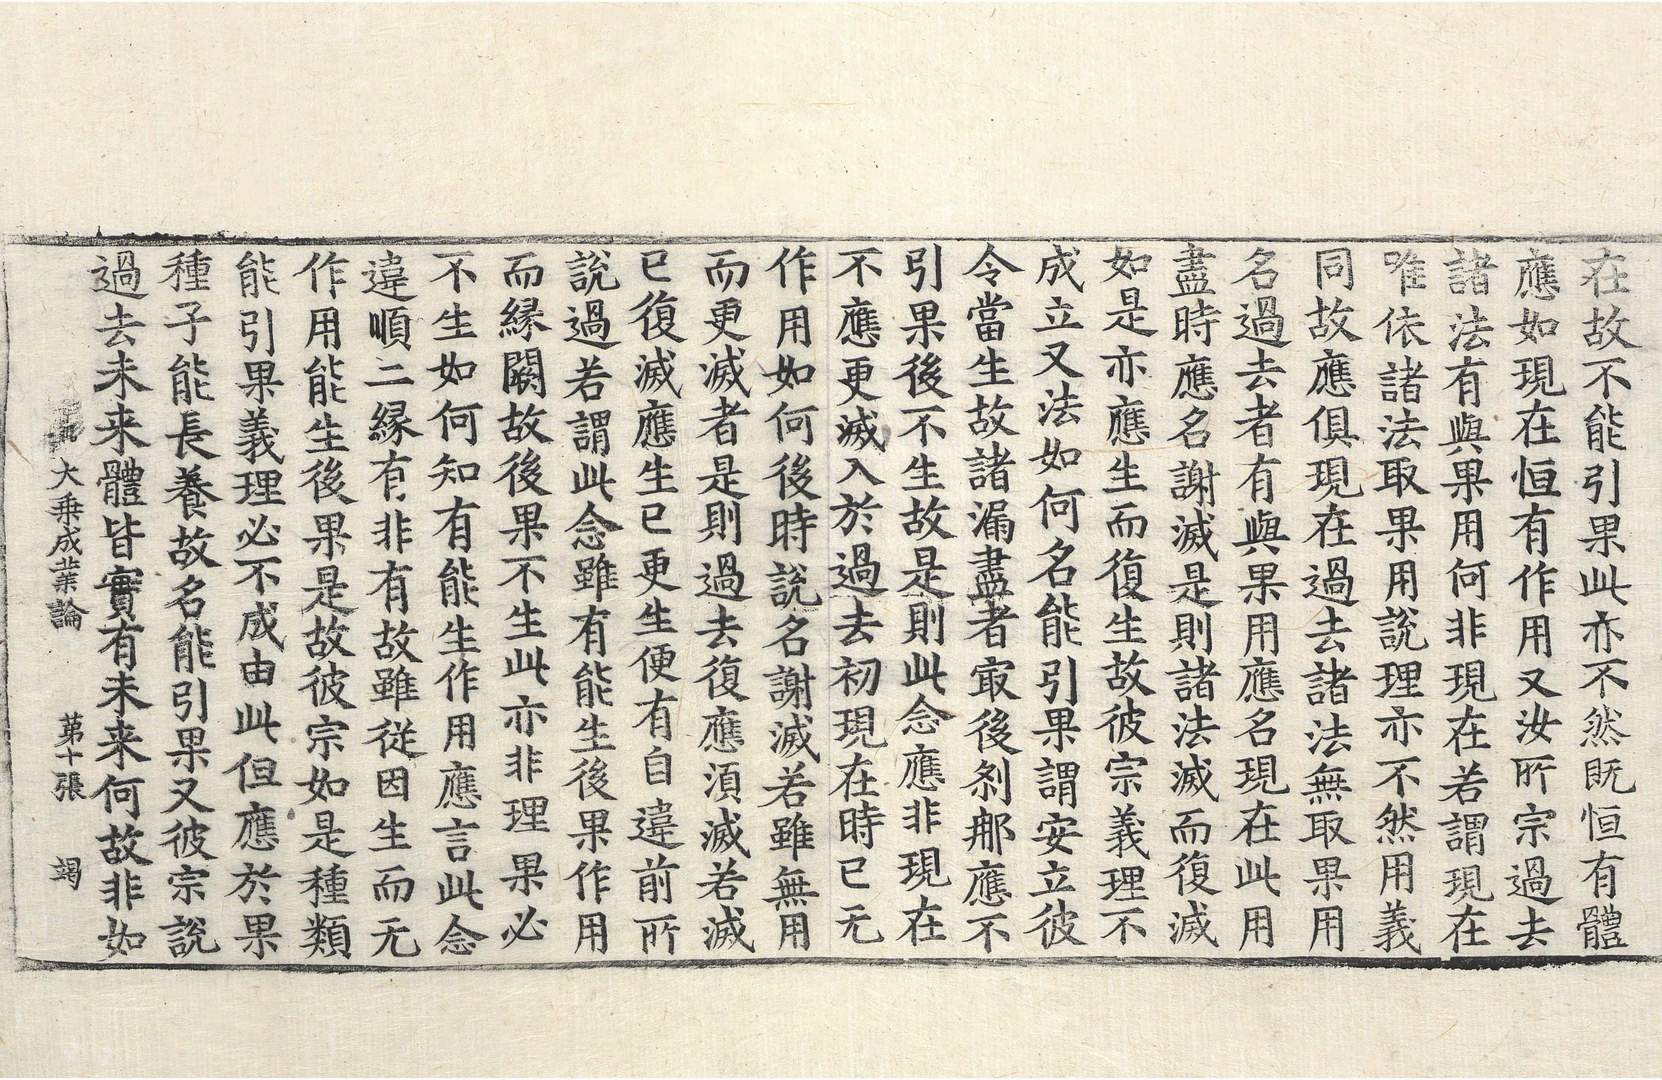 在故不能引果此亦不然既恒有體
應如現在恒有作用又汝所宗過去
諸法有與果用何非現在若謂現在
唯依諸法取果用說理亦不然用義
同故應俱現在過去諸法無取果用
名過去者有與果用應名現在此用
盡時應名謝滅是則諸法滅而復滅
如是亦應生而復生故彼宗義理不
成立又法如何名能引果謂安立彼
令當生故諸漏盡者㝡後刹那應不
引果後不生故是則此念應非現在
不應更滅入於過去初現在時已无
作用如何後時說名謝滅若雖無用
而更滅者是則過去復應湏滅若滅
已復滅應生已更生便有自違前所
說過若謂此念雖有能生後果作用
而緣闕故後果不生此亦非理果必
不生如何知有能生作用應言此念
違順二緣有非有故雖從因生而无
作用能生後果是故彼宗如是種類
能引果義理必不成由此但應於果
種子能長養故名能引果又彼宗說
過去未来體皆實有未来何故非如
大乗成業論 苐十張 竭